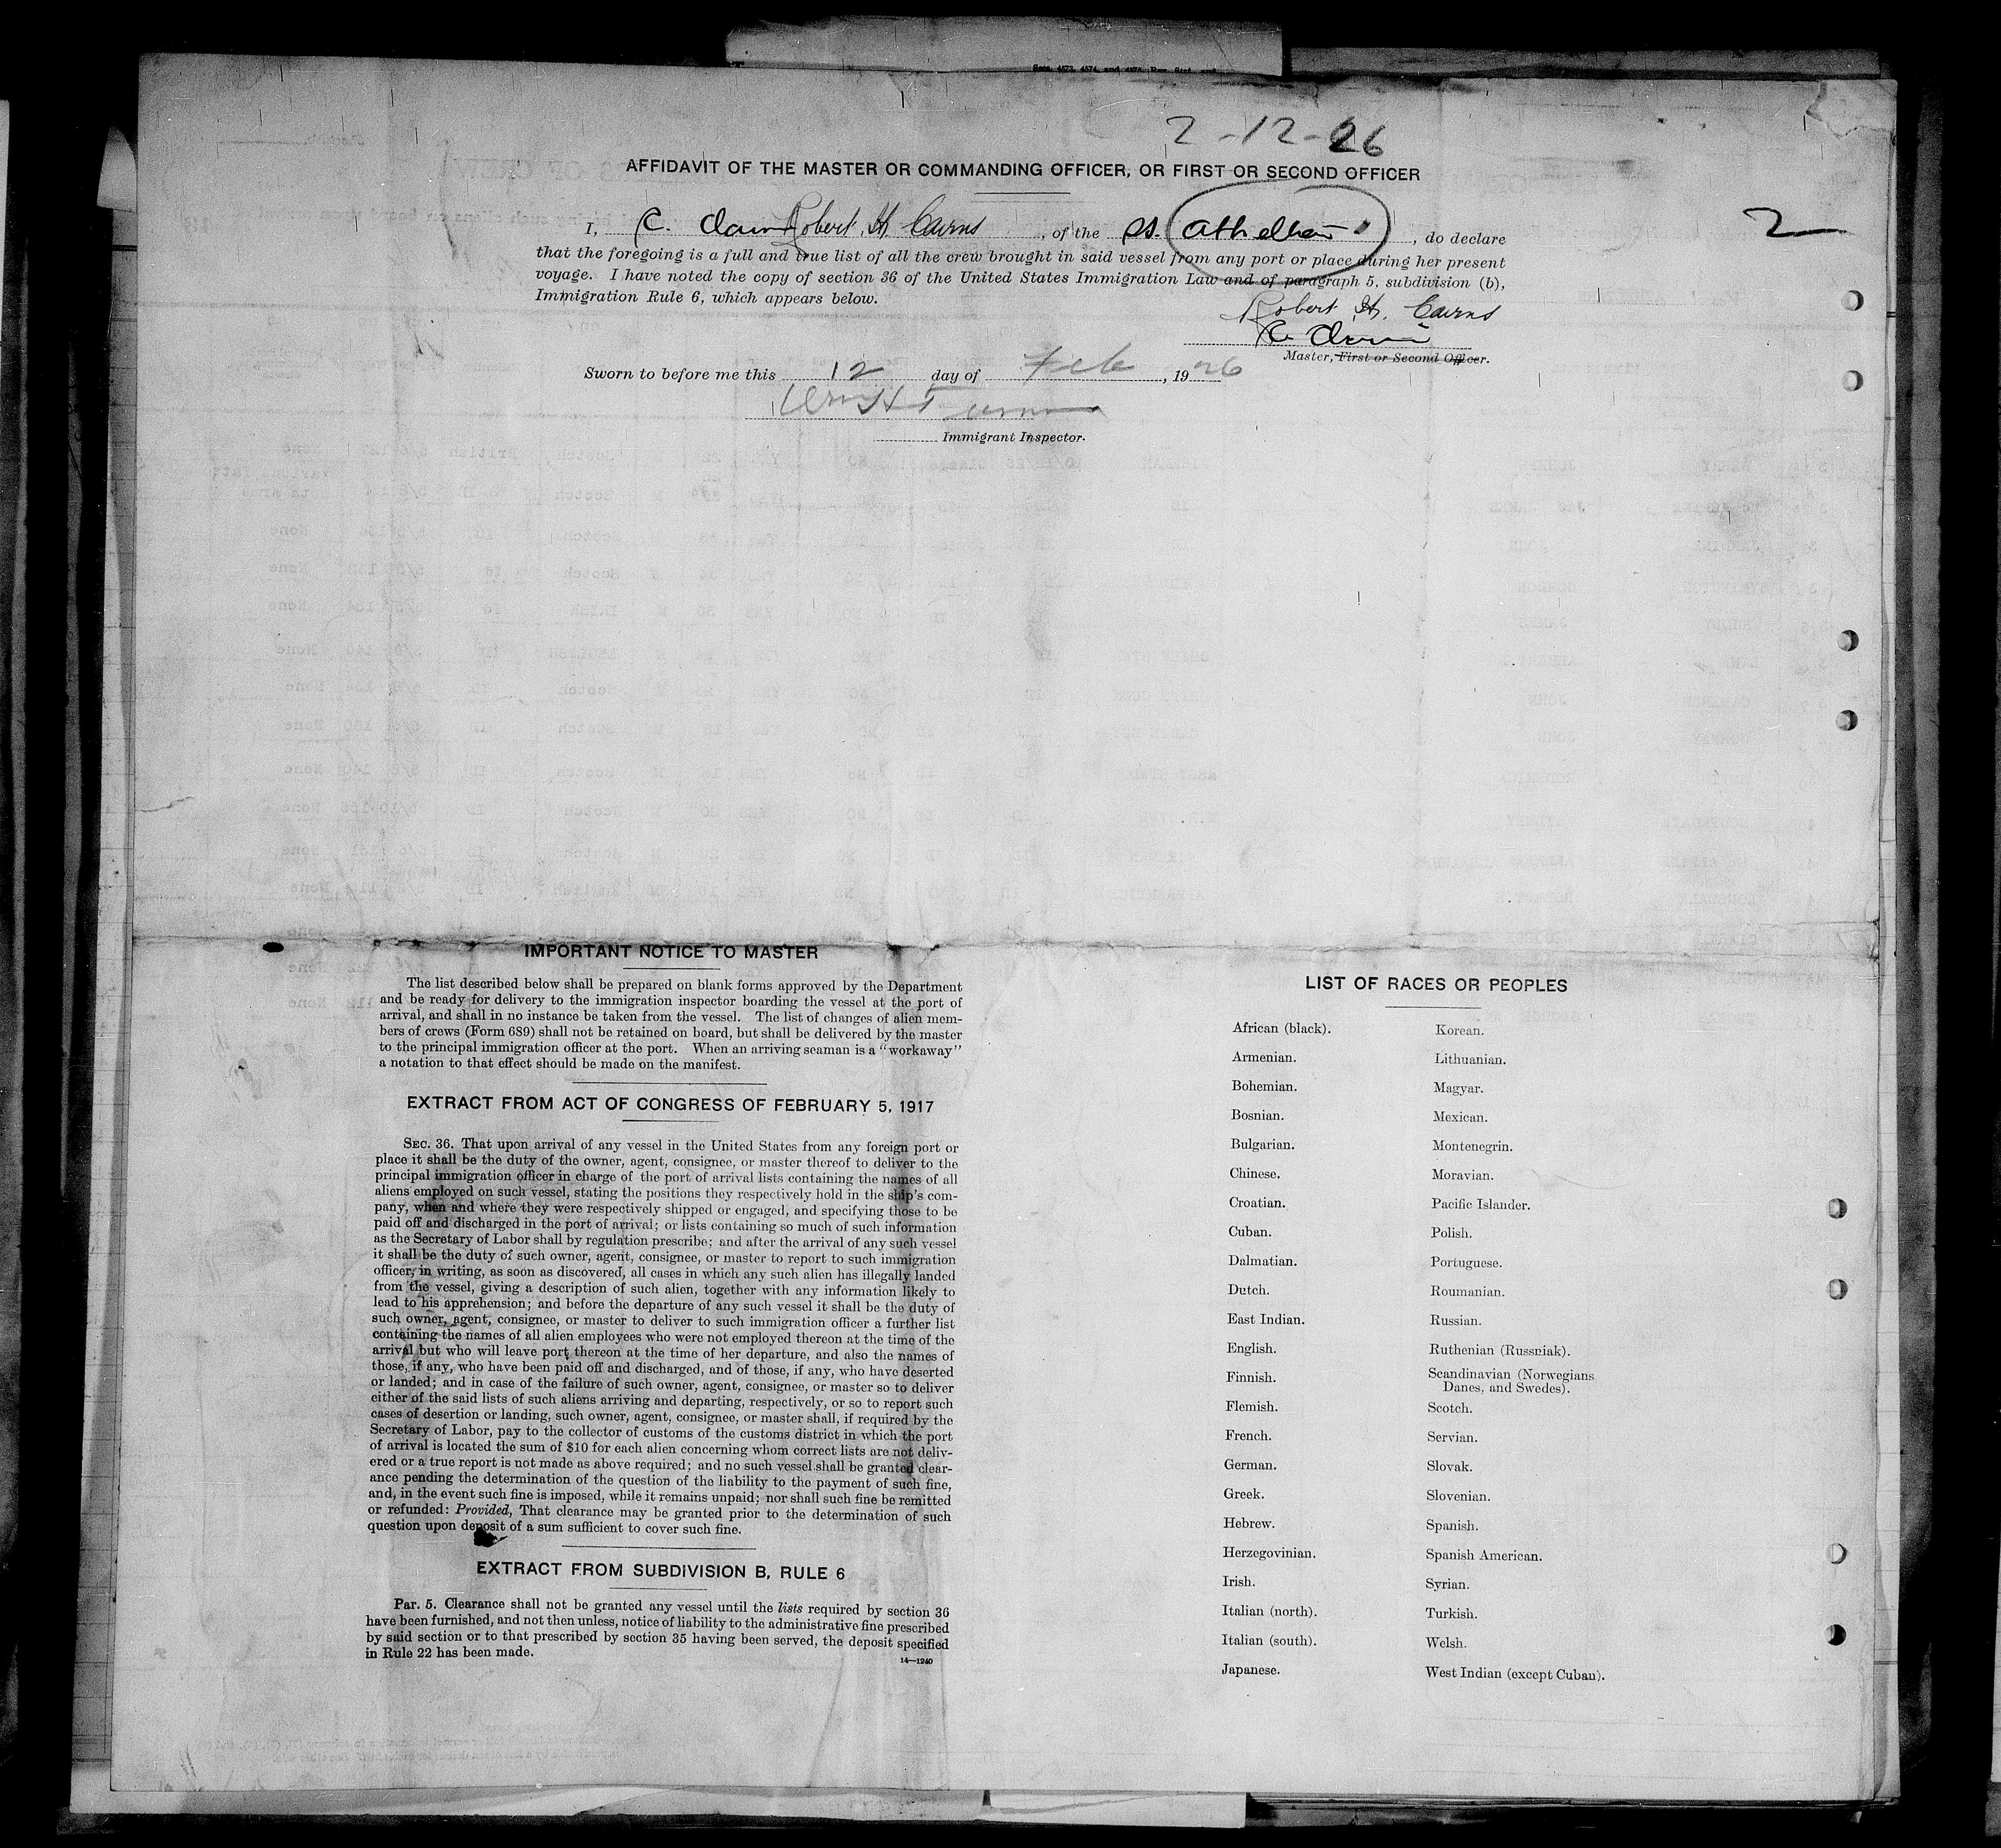 2-12-26
AFFIDAVIT OF THE MASTER OR COMMANDING OFFICER, OR FIRST OR SECOND OFFICER
2
I, C. Robert H. Cairns, of the SS. , do declare
that the foregoing is a full and true list of all the crew brought in said vessel from any port or place during her present
voyage. I have noted the copy of section 36 of the United States Immigration Law and of paragraph 5, subdivision (b),
Immigration Rule 6, which appears below.
Robert H. Cairns
C.
Master, First or Second Officer.
Sworn to before me this 12 day of Feb, 1926
Immigrant Inspector.
IMPORTANT NOTICE TO MASTER
The list described below shall be prepared on blank forms approved by the Department
and be ready for delivery to the immigration inspector boarding the vessel at the port of
arrival, and shall in no instance be taken from the vessel. The list of changes of alien mem-
bers of crews (Form 689) shall not be retained on board, but shall be delivered by the master
to the principal immigration officer at the port. When an arriving seaman is a "workaway"
a notation to that effect should be made on the manifest.
EXTRACT FROM ACT OF CONGRESS OF FEBRUARY 5, 1917
SEC. 36. That upon arrival of any vessel in the United States from any foreign port or
place it shall be the duty of the owner, agent, consignee, or master thereof to deliver to the
principal immigration officer in charge of the port of arrival lists containing the names of all
aliens employed on such vessel, stating the positions they respectively hold in the ship's com-
pany, when and where they were respectively shipped or engaged, and specifying those to be
paid off and discharged in the port of arrival; or lists containing so much of such information
as the Secretary of Labor shall by regulation prescribe; and after the arrival of any such vessel
it shall be the duty of such owner, agent, consignee, or master to report to such immigration
officer, in writing, as soon as discovered, all cases in which any such alien has illegally landed
from the vessel, giving a description of such alien, together with any information likely to
lead to his apprehension; and before the departure of any such vessel it shall be the duty of
such owner, agent, consignee, or master to deliver to such immigration officer a further list
containing the names of all alien employees who were not employed thereon at the time of the
arrival but who will leave port thereon at the time of her departure, and also the names of
those, if any, who have been paid off and discharged, and of those, if any, who have deserted
or landed; and in case of the failure of such owner, agent, consignee, or master so to deliver
either of the said lists of such aliens arriving and departing, respectively, or so to report such
cases of desertion or landing, such owner, agent, consignee, or master shall, if required by the
Secretary of Labor, pay to the collector of customs of the customs district in which the port
of arrival is located the sum of $10 for each alien concerning whom correct lists are not deliv-
ered or a true report is not made as above required; and no such vessel shall be granted clear-
ance pending the determination of the question of the liability to the payment of such fine,
and, in the event such fine is imposed, while it remains unpaid; nor shall such fine be remitted
or refunded: Provided, That clearance may be granted prior to the determination of such
question upon deposit of a sum sufficient to cover such fine.
EXTRACT FROM SUBDIVISION B, RULE 6
Par. 5. Clearance shall not be granted any vessel until the lists required by section 36
have been furnished, and not then unless, notice of liability to the administrative fine prescribed
by said section or to that prescribed by section 35 having been served, the deposit specified
in Rule 22 has been made.
14—1240
LIST OF RACES OR PEOPLES
African (black).
Armenian.
Bohemian.
Bosnian.
Bulgarian.
Chinese.
Croatian.
Cuban.
Dalmatian.
Dutch.
East Indian.
English.
Finnish.
Flemish.
French.
German.
Greek.
Hebrew.
Herzegovinian.
Irish.
Italian (north).
Italian (south).
Japanese.
Korean.
Lithuanian.
Magyar.
Mexican.
Montenegrin.
Moravian.
Pacific Islander.
Polish.
Portuguese.
Roumanian.
Russian.
Ruthenian (Russniak).
Scandinavian (Norwegians
Danes, and Swedes).
Scotch.
Servian.
Slovak.
Slovenian.
Spanish.
Spanish American.
Syrian.
Turkish.
Welsh.
West Indian (except Cuban).